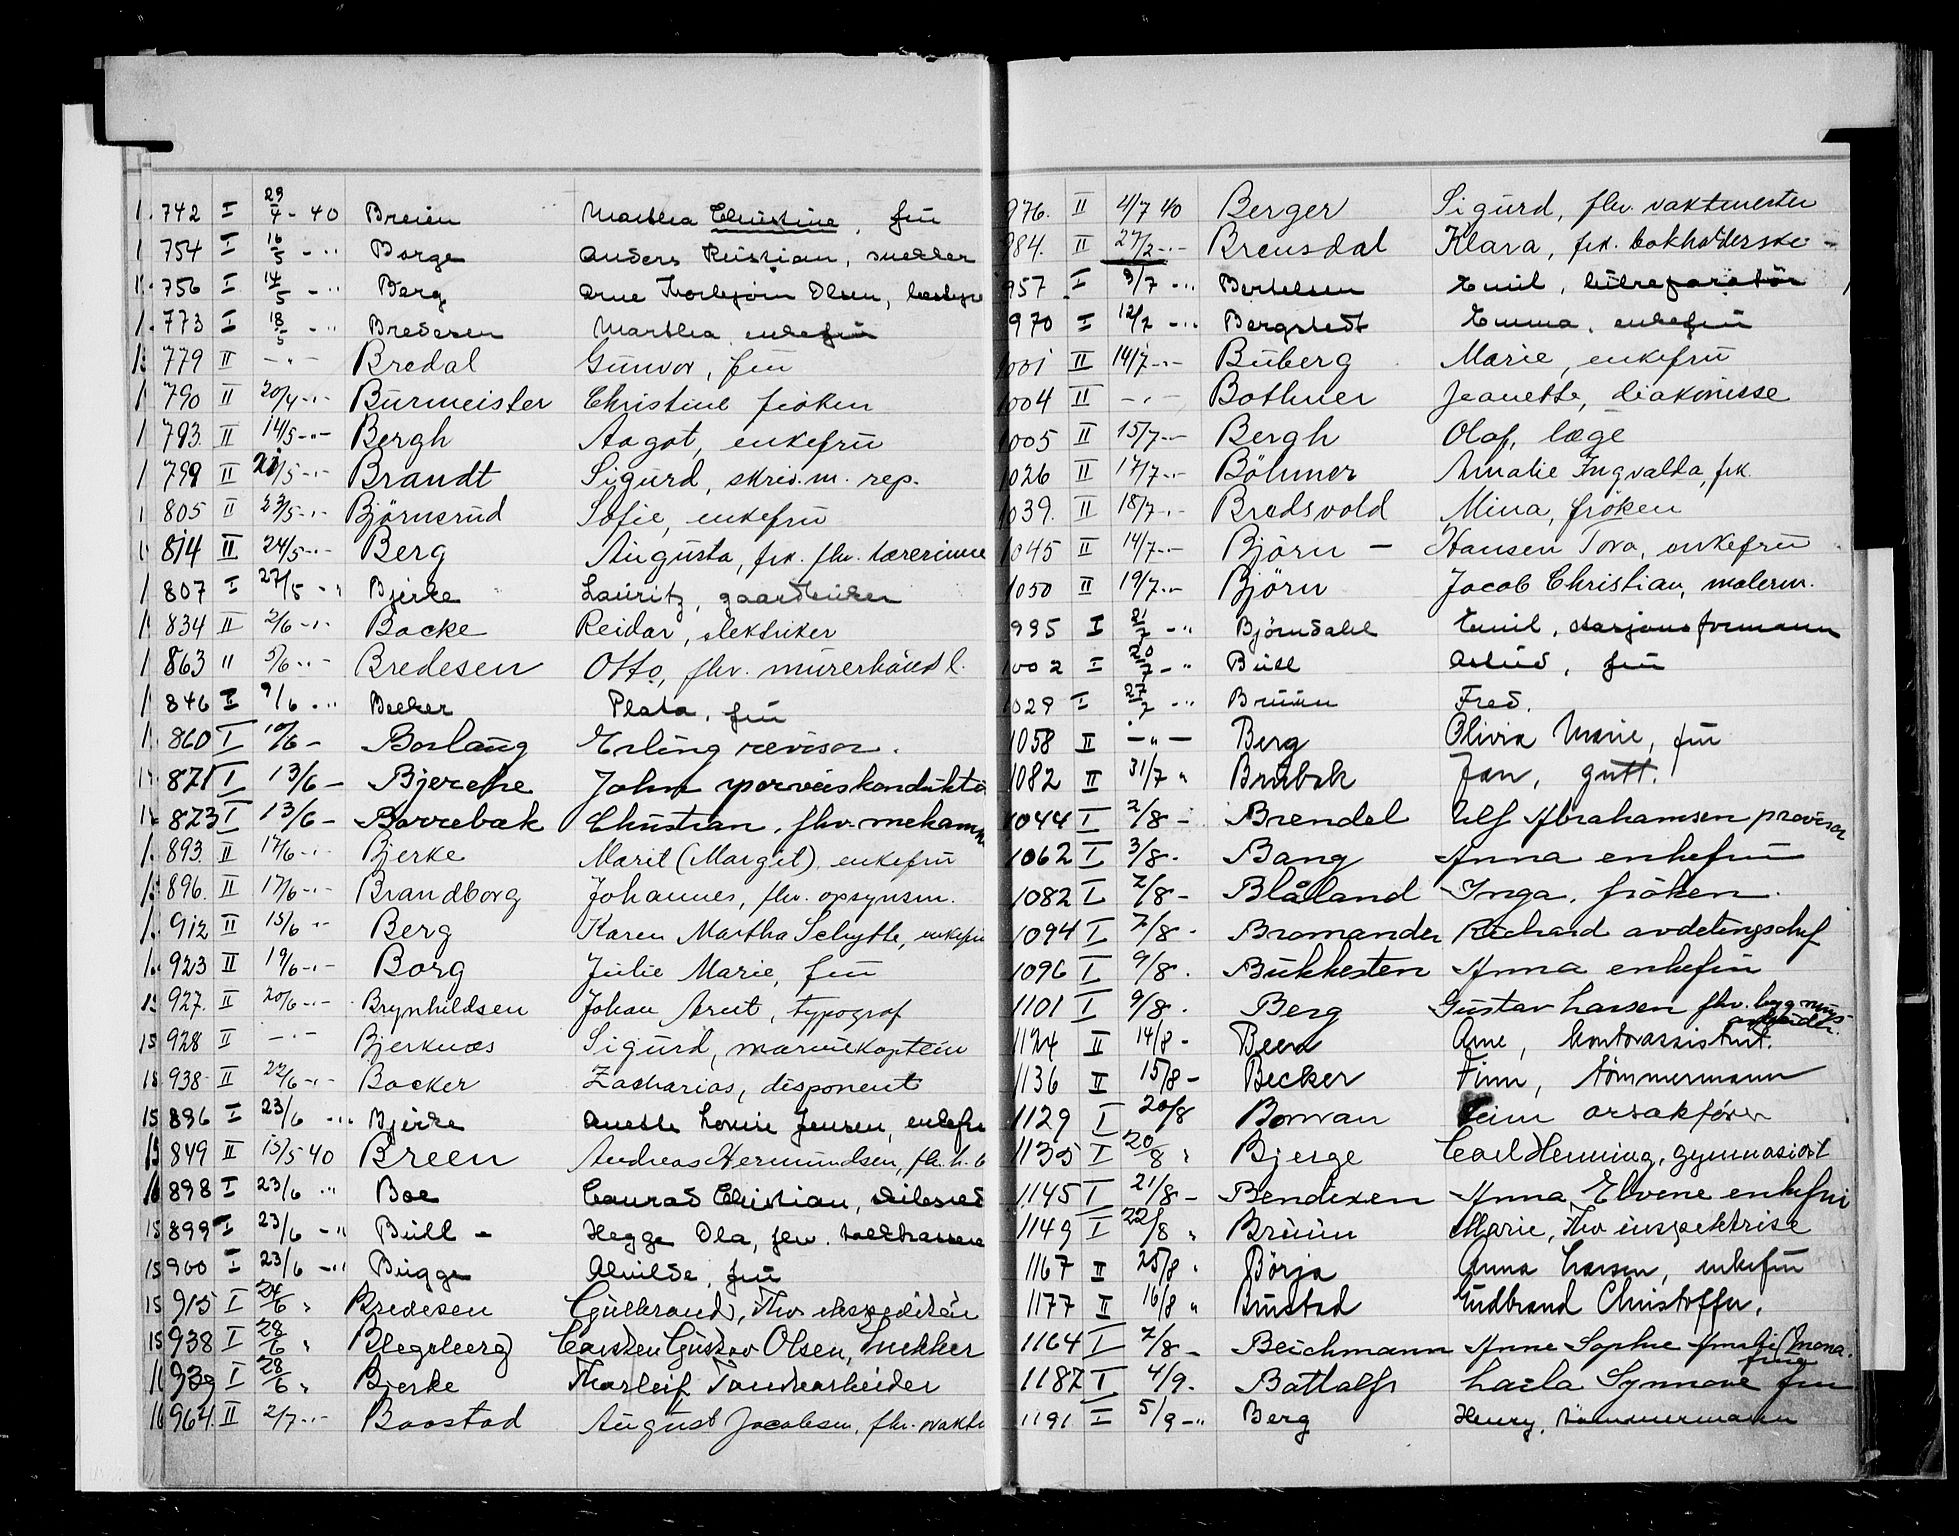 742 I 29/4 - 40 Breien Martha Christine, fru
754 I 16/5 - " Borge Anders Kristian, snekker
756 I 14/5 - " Berg Arne Thorbjørn Olsen,
773 I 18/5 - " Bredesen Martha, enkefru
779 II - " - Bredal Gunvor, fru
790 II 20/4 - " - Burmeister Christine frøken
793. II 14/5 - " - Bergh Aagot, enkefru
799 II 21/5 - " - Brandt Sigurd, skriv.m. rep.
805 II 23/5 - " - Bjørnerud Sofie, enkefru
814 II 24/5 - " - Berg Augusta, frk. fhv. lærerinne
807 I 27/5 - " Bjerke Lauritz, gaardbruker
834 II 2/6 - " - Backe Reidar, elektriker
863 " 5/6 - " - Bredesen Otto, fhv. murerhåndl.
846 I 9/6 - " Becker Plata, fru
860 I 10/6 - Borlaug Erling revisor.
871 I 13/6 - Bjerche John sporveiskonduktø
873 I 13/6 - Borrebæk Christian, fhv. mekanik
893. II 17/6 - " Bjerke Marit (Margit), enkefru
896. II 17/6 - " - Brandborg Johannes, fhv. opsynsm.
912 II 15/6 " - Berg Karen Martha Schytte, enkefru
923 II 19/6 - " - Borg Julie Marie, fru
927. II 20/6 - " - Brynhildsen Johan Arnt, typograf
928 II - " - Bjerknæs Sigurd, marinekaptein
938 - II 22/6 - " - Backer Zacharias, disponent
896 I 23/6 - " Bjerke Anette Lovise Jensen, enkefru
849 II 15/5 40 Breen Andreas Hermundsen, fhv. h.
898 I 23/6 " Boe Conrad Christian,
899 I 23/6 - " Bull - Hegge Ola, fhv. tollkasserer
900 I 23/6 - " Bugge Alvilde, fru
915 I 24/6 " Bredesen Gulbrand, Fhv ekspeditør
938 I 28/6 " Blegeberg Carsten Gustav Olsen, Snekker
939 I 28/6 " Bjerke Thorleif Tomtearbeider
964. II 2/7 - " - Baastad August Jacobsen, fhv. vaktm
976. II 4/7 40 Berger Sigurd, fhv. vaktmester
984. II 27/2 - " - Brensdal Klara, frk. bokholderske -
957 I 9/7 - " Bertelsen Emil, bilreparatør
970 I 12/7 - " Bergstedt Emma, enkefru
1001 II 14/7 - " - Buberg Marie, enkefru
1004 II - " - Bothner Jeanette, diakonisse
1005 II 15/7 - " - Bergh Olaf, læge
1026 II 17/7 - " - Böhmer Amalie Ingvalda, frk.
1039. II 18/7 - " - Bredsvold Mina, frøken
1045 II 14/7 - " - Björn - Hansen Tora, enkefru
1050 II 19/7 - " - Björn Jacob Christian, malerm.
995 I 21/7 - " Björndahl Emil, stasjonsformann
1002 I 20/7 - " Bull Astrid, fru
1029 I 27/7 - " Bruun Fred.
1058 II - " - Berg Olivia Marie, fru
1082 II 31/7 " Brubak Jan, gutt.
1044 I 2/8 - Brendel Ulf Abrahamsen provisor
1062 I 3/8 - Bang Anna enkefru
1082 I 2/8 - Blåland Inga, frøken
1094 I 7/8 - Bromander Richard avdelingschef
1096 I 9/8 . Bukkesten Anna enkefru
1101 I 9/8 . Berg Gustav Larsen fhv. bygnings
arbeider.
1124 II 14/8 - Been Arne, kontorassistent.
1136 II 15/8 - Becker Finn, tømmermann
1129 I 20/8 Borvan
1135 I 20/8 " Bjerge Carl Henning, gymnasiast
1145 I 21/8 - Bendixen Anna Elvene enkefru
1149 I 22/8 " Bruun Marie, Fhv inspektrise
1167 II 25/8 " Börja Anna Larsen, enkefru
1177 II 16/8 " Brustad Gudbrand Christoffer.
1164 I 2/8 - Beichmann Anne Sophie Amalie (Mona)
frue
1187 I 4/9. Battalfs Laila Synnøve fru
1191 I 5/9 - " Berg Henry, tømmermann